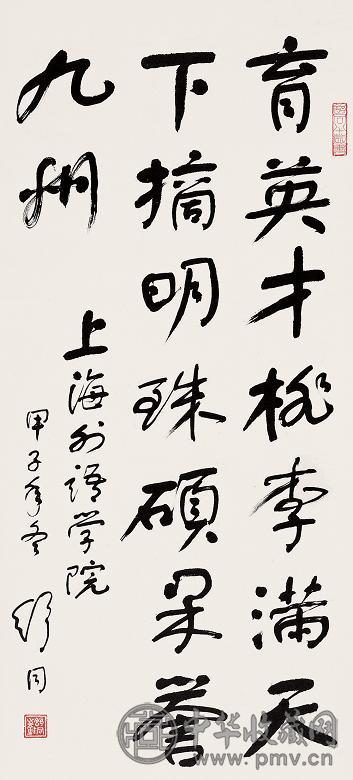 育英才桃李满天
下摘明珠硕果
九州
上海外语学院
甲子年冬 舒同
中华收藏网
www.pmv.cn